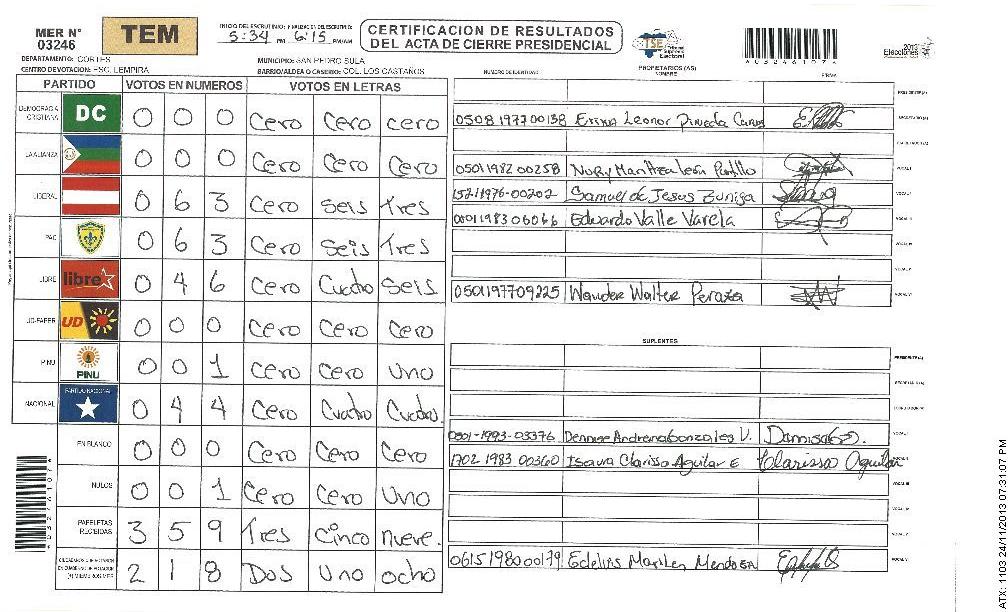 MER N° 03246
TEM
INICIO DEL ESCRUTINIO: FINALIZACION DEL ESCRUTINIO:
5:34 PM 6:15 PM/AM
CERTIFICACION DE RESULTADOS
DEL ACTA DE CIERRE PRESIDENCIAL
TSE Tribunal Supremo Electoral
2013 Elecciones
DEPARTAMENTO: CORTES
MUNICIPIO: SAN PEDRO SULA
CENTRO DE VOTACION: ESC. LEMPIRA
BARRIO/ALDEA O CASERIO: COL. LOS CASTAÑOS
NUMERO DE IDENTIDAD PROPIETARIOS (AS) NOMBRE FIRMA
PARTIDO VOTOS EN NUMEROS VOTOS EN LETRAS
DEMOCRACIA CRISTIANA DC 0 0 0 Cero Cero cero
LA ALIANZA 0 0 0 Cero Cero Cero
LIBERAL 0 6 3 Cero Seis Tres
PAC 0 6 3 Cero Seis Tres
LIBRE libre 0 4 6 Cero Cuatro Seis
UD-FAPER UD 0 0 0 Cero Cero Cero
PINU PINU 0 0 1 Cero Cero Uno
NACIONAL PARTIDO NACIONAL 0 4 4 Cero Cuatro Cuatro.
EN BLANCO 0 0 0 Cero Cero Cero
NULOS 0 0 1 Cero Cero Uno
PAPELETAS RECIBIDAS 3 5 9 Tres Cinco nueve.
2 1 8 Dos Uno ocho
PRESIDENTE (A)
0508 1977 00138 Erixa Leonor Pineda SECRETARIO (A)
0501 1982 00258 Nury VOCAL I
1521-1976-00202 Samuel de Jesus Zuniga
0001 1983 06066 Eduardo Valle Varela
0501197709225 Wander Walter Peraza
SUPLENTES
PRESIDENTE (A)
SECRETARIO (A)
0501-1993-03376 Dennise Andrena Gonzales V.
1702 1983 00360 Isaura Clarissa Aguilar E Clarissa Aguilar
0615 1980 00179 Edelins Marilen Mendoza
ATX: 1103 24/11/2013 07:31:07 PM